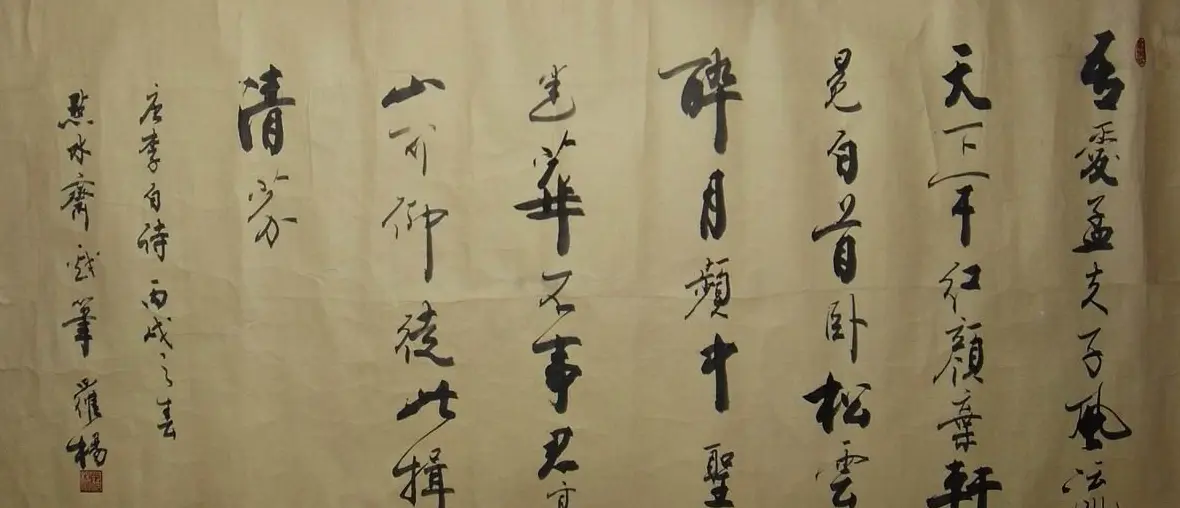 吾愛孟夫子風流
天下聞紅顏棄軒
冕白首臥松雲
醉月頻中聖
迷華不事君高
山可仰徒此揖
清芬
唐李白詩丙戌之春
點水齋戲筆羅楊